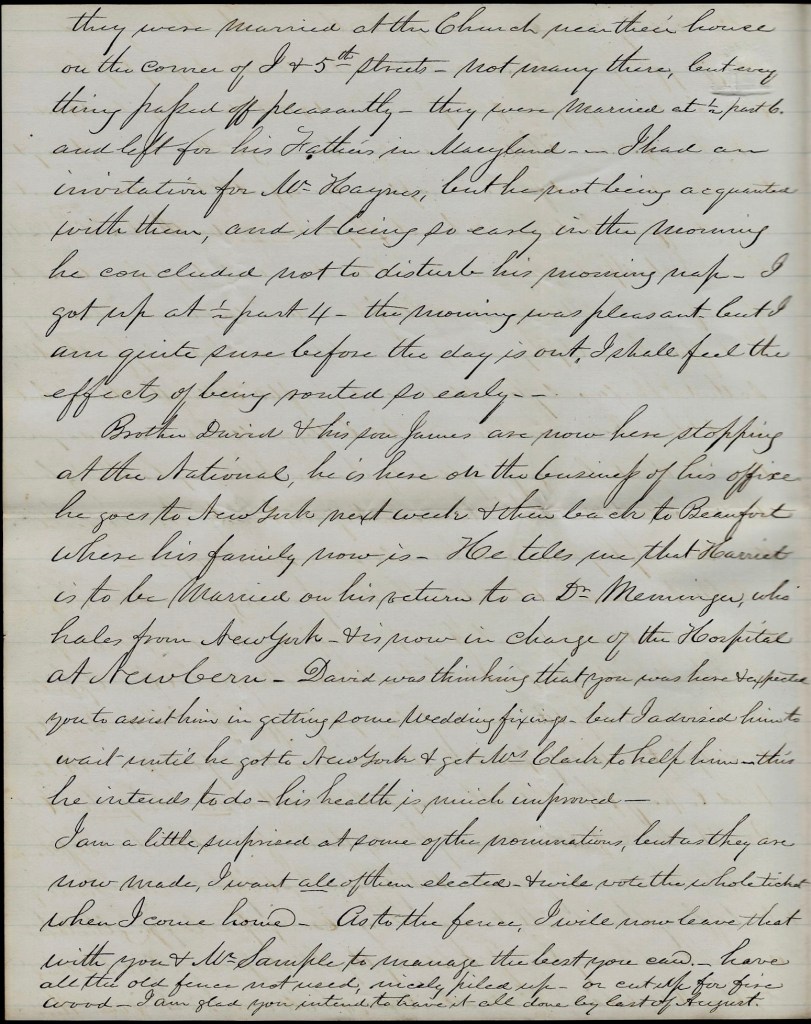 they were Married at the Church near their house
on the corner of I & 5th streets - not many there, but every
thing passed off pleasantly - they were Married at ½ past 6.
and left for his Fathers in Maryland - - I had an
invitation for Mr Haynes, but he not being acquanted
with them, and it being so early in the morning
he concluded not to disturb his morning nap - I
got up at ½ past 4 - the morning was pleasant but I
am quite sure before the day is out, I shall feel the
effects of being routed so early - -
Brother David & his son James are now here stopping
at the National, he is here on the business of his office
he goes to New York next week & then back to Beaufort
where his family now is - He tells me that Harriet
is to be Married on his return to a Dr Memminger, who
hales from New York - & is now in charge of the Hospital
at Newbern - David was thinking that you was here & expected
you to assist him in getting some Wedding fixings - but I advised him to
wait until he got to New York & get Mrs Clark to help him - this
he intends to do - his health is much improved -
I am a little surprised at some of the nominations, but as they are
now made, I want all of them elected - & will vote the whole ticket
when I come home - As to the fence, I will now leave that
with you & Mr Sample to manage the best you can. - have
all the old fence not used, nicely piled up - or cut up for fire
wood - I am glad you intend to have it all done by last of August.